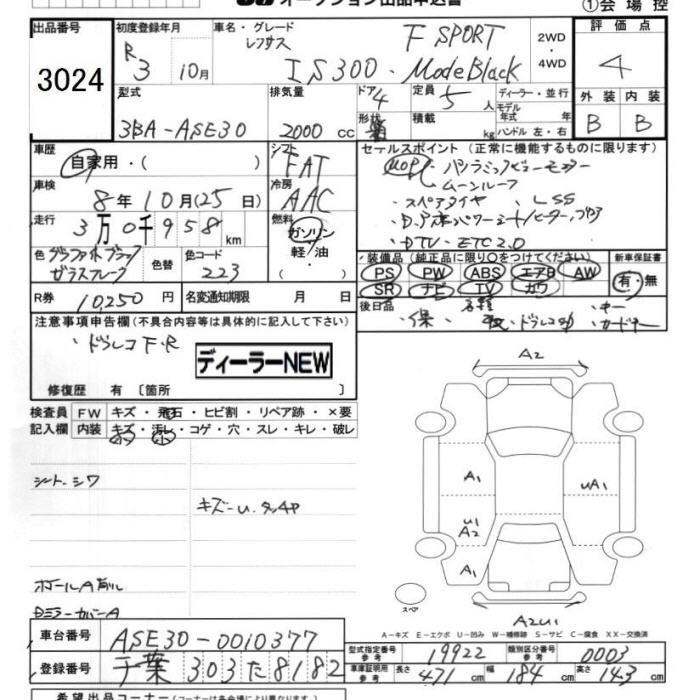 オークション出品申込書
①会場控
出品番号
3024
初度登録年月
R3 10月
車名・グレード
レクサス F SPORT
IS300・Mode Black
2WD・4WD
評価点
4
外装 内装
B B
型式
3BA-ASE30
排気量
2000 cc
ドア 4
形状
定員 5 人
積載 kg
ディーラー・並行
モデル年式 年式
ハンドル 左・右
車歴
自家用・( )
シフト
FAT
車検
8年10月(25日)
冷房
AAC
走行
3万0千958km
燃料
ガソリン
軽・油
色 グラファイトブラックガラスフレーク
色替
色コード
223
R券 10,250円
名変通知期限 月 日
セールスポイント (正常に機能するものに限ります)
MOP パノラミックビューモニター
ムーンルーフ
・スペアタイヤ ・LSS
・DTV・ETC2.0
装備品(純正品に限り○をつけてください)
PS PW ABS エアB AW
SR ナビ TV カワ
新車保証書
有・無
後日品
・保
・キー
注意事項申告欄(不具合内容等は具体的に記入して下さい)
・ドラレコF・R
ディーラーNEW
修復歴 有〔箇所 〕
検査員 FW キズ・飛石・ヒビ割・リペア跡・×要
記入欄 内装 キズ・汚レ・コゲ・穴・スレ・キレ・破レ
シート.シワ
キズ-U.タッチP
ホイールA削ル
DミラーカバーA
A2
A1
UA1
U1
A2
A1
A2U1
スペア
A-キズ E-エクボ U-凹み W-補修跡 S-サビ C-腐食 XX-交換済
車台番号 ASE30-0010377
登録番号 千葉303た8182
型式指定番号 参考 19922
類別区分番号 参考 0003
車庫証明用 参考 長さ471 幅184 高さ143cm
希望出品コーナー